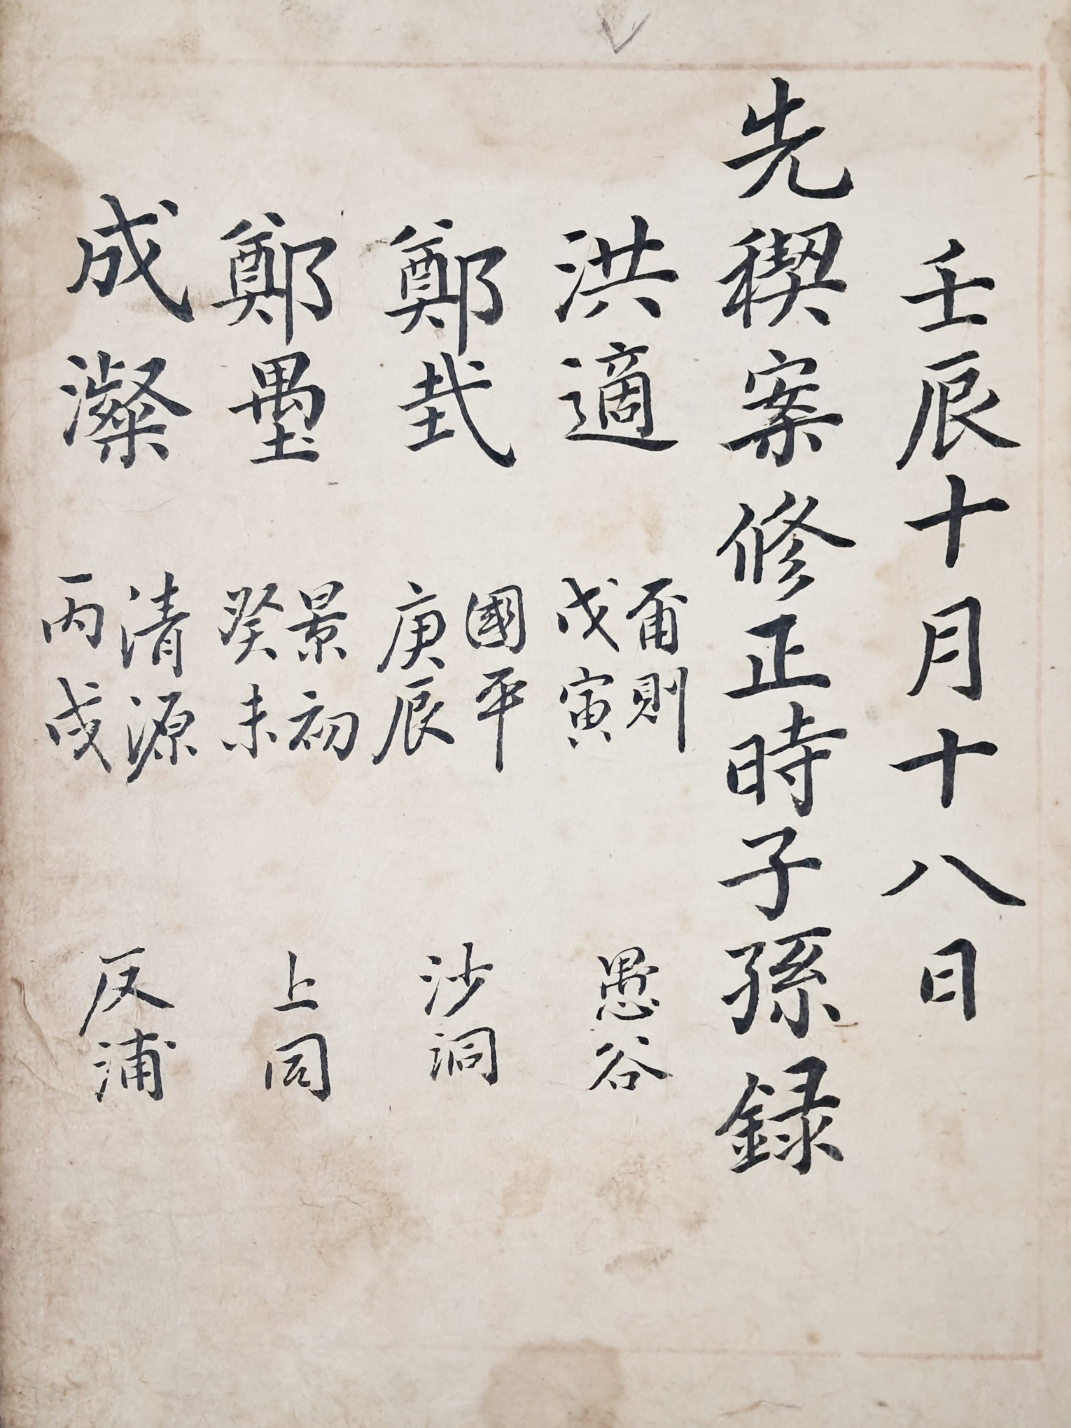 壬辰十月十八日
先稧案修正時子孫錄
洪適 甯則 戊寅 愚谷
鄭㦲 國平 庚辰 沙洞
鄭墨 景初 癸未 上同
成澯 清源 丙戌 反浦